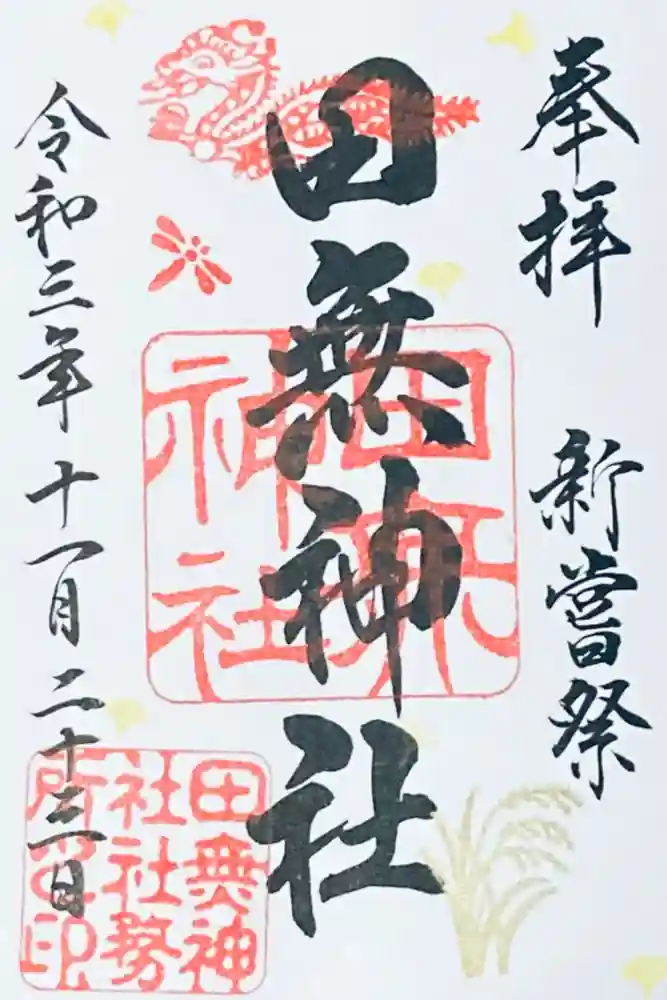 奉拝
新嘗祭
田無神社
田無神社
令和三年十一月二十三日
田無神社社務所之印